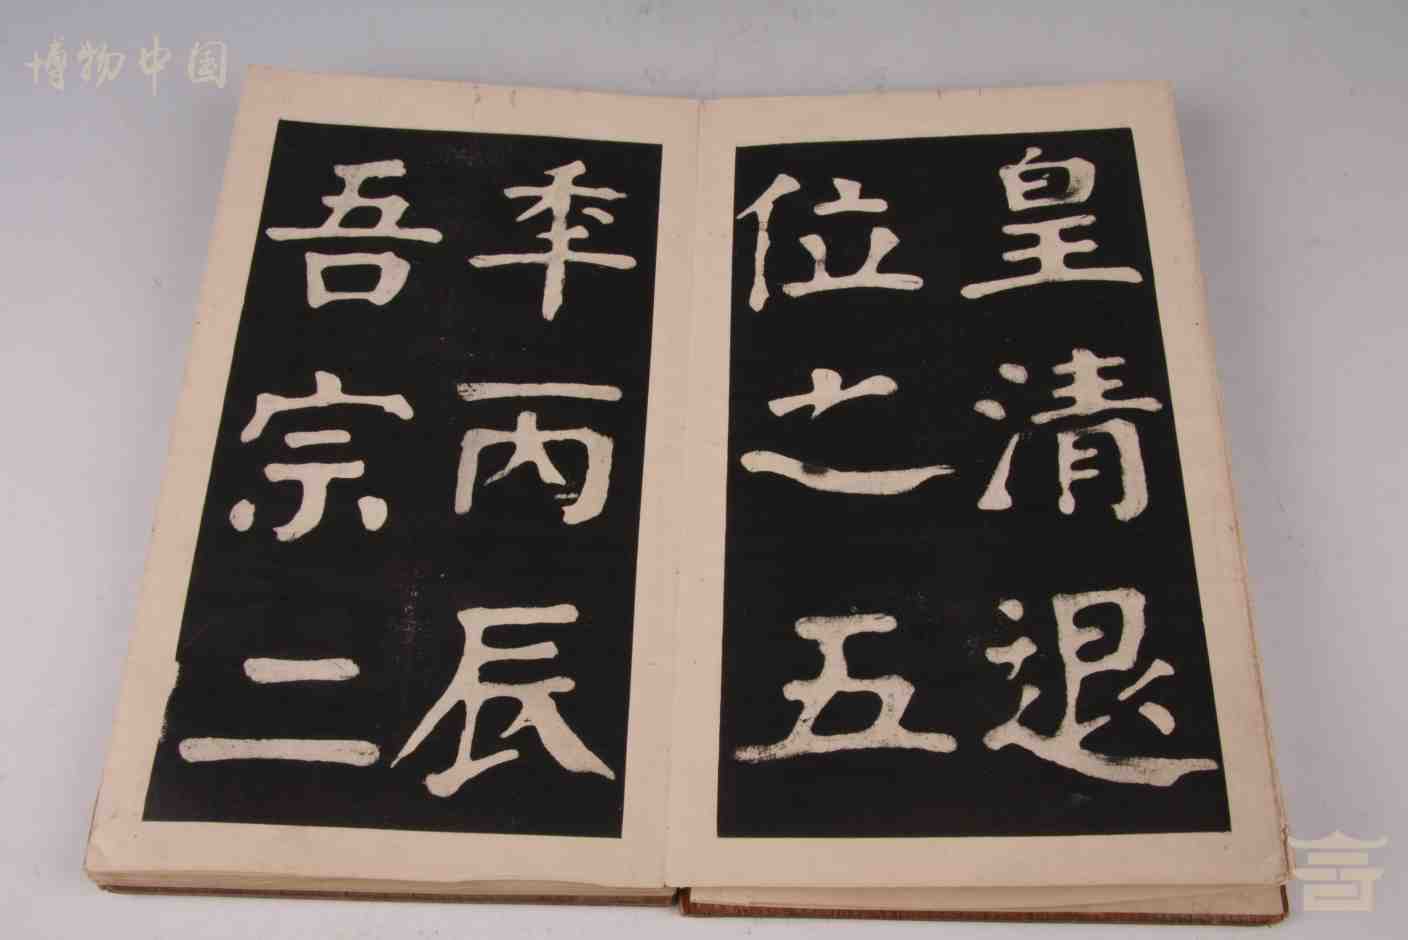 博物中国
皇清退
位之五
年丙辰
吾宗二